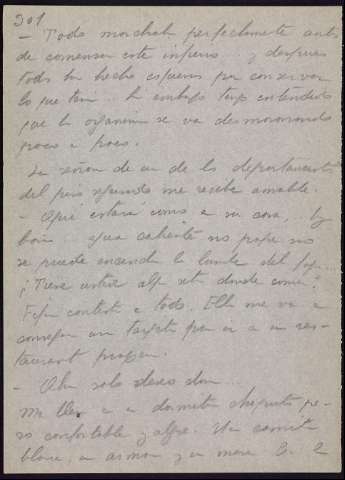 301
— Todo marchaba perfectamente antes
de comenzar este infierno... y después
todos han hecho esfuerzos por conservar
lo que tenían... Sin embargo tengo entendido
que la organización se va desmoronando
poco a poco.
La señora de uno de los departamentos
del piso segundo me recibe amable.
— Aquí estará como en su casa,... hay
baño... agua caliente no porque no
se puede encender la lumbre del
¿Tiene usted algo en donde comer?
contesto a todo. Ella me va a
conseguir un tarjeta para ir a un res-
taurant
— Ahora solo deseo dormir...
Me lleva a un dormitorio chiquito pe-
ro confortable y alegre. Una camita
blanca, un armario y una mesa. E. 2